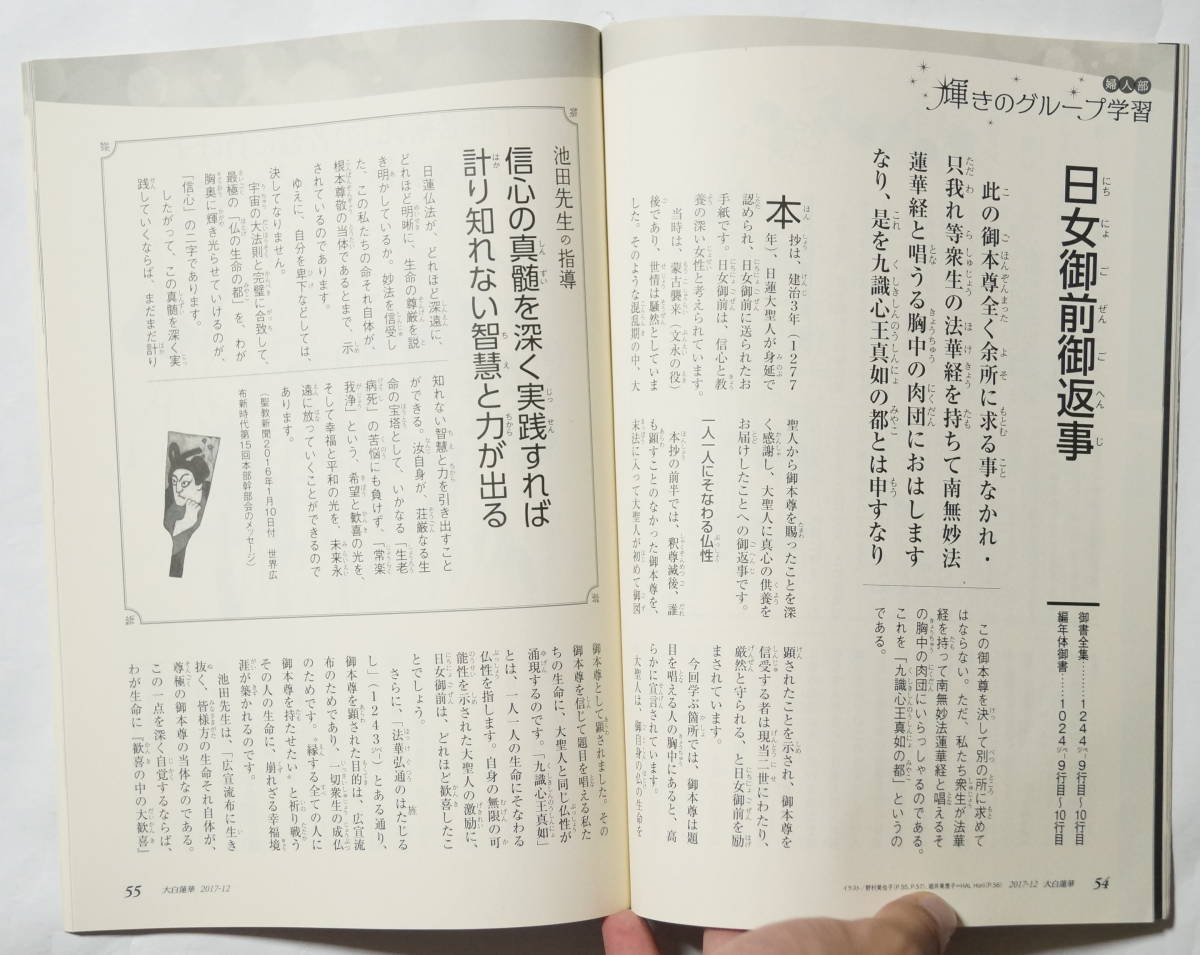 婦人部
輝きのグループ学習
日女御前御返事
御書全集………1244㌻9行目～10行目
編年体御書……1024㌻9行目～10行目
此の御本尊全く余所に求る事なかれ・
只我れ等衆生の法華経を持ちて南無妙法
蓮華経と唱うる胸中の肉団におはします
なり、是を九識心王真如の都とは申すなり
この御本尊を決して別の所に求めて
はならない。ただ、私たち衆生が法華
経を持って南無妙法蓮華経と唱えるそ
の胸中の肉団にいらっしゃるのである。
これを「九識心王真如の都」というの
である。
本抄は、建治3年（1277
年）、日蓮大聖人が身延で
認められ、日女御前に送られたお
手紙です。日女御前は、信心と教
養の深い女性と考えられています。
当時は、蒙古襲来（文永の役）
後であり、世情は騒然としていま
した。そのような混乱期の中、大
聖人から御本尊を賜ったことを深
く感謝し、大聖人に真心の供養を
お届けしたことへの御返事です。
一人一人にそなわる仏性
本抄の前半では、釈尊滅後、誰
も顕すことのなかった御本尊を、
末法に入って大聖人が初めて御図
顕されたことを示され、御本尊を
信受する者は現当二世にわたり、
厳然と守られる、と日女御前を励
まされています。
今回学ぶ箇所では、御本尊は題
目を唱える人の胸中にあると、高
らかに宣言されています。
大聖人は、御自身の仏の生命を
イラスト／野村美佐子(P.55、P.57)、
2017-12 大白蓮華 54
池田先生の指導
信心の真髄を深く実践すれば
計り知れない智慧と力が出る
日蓮仏法が、どれほど深遠に、
どれほど明晰に、生命の尊厳を説
き明かしているか。妙法を信受し
た、この私たちの命それ自体が、
根本尊敬の当体であるとまで、示
されているのであります。
ゆえに、自分を卑下などしては、
決してなりません。
宇宙の大法則と完璧に合致して、
最極の「仏の生命の都」を、わが
胸奥に輝き光らせていけるのが、
「信心」の二字であります。
したがって、この真髄を深く実
践していくならば、まだまだ計り
知れない智慧と力を引き出すこと
ができる。汝自身が、荘厳なる生
命の宝塔として、いかなる「生老
病死」の苦悩にも負けず、「常楽
我浄」という、希望と歓喜の光を、
そして幸福と平和の光を、未来永
遠に放っていくことができるので
あります。
（聖教新聞2016年1月10日付　世界広
布新時代第15回本部幹部会のメッセージ）
御本尊として顕されました。その
御本尊を信じて題目を唱える私た
ちの生命に、大聖人と同じ仏性が
涌現するのです。「九識心王真如」
とは、一人一人の生命にそなわる
仏性を指します。自身の無限の可
能性を示された大聖人の激励に、
日女御前は、どれほど歓喜したこ
とでしょう。
さらに、「法華弘通のはたじる
し」（1243㌻）とある通り、
御本尊を顕された目的は、広宣流
布のためであり、一切衆生の成仏
のためです。〝縁する全ての人に
御本尊を持たせたい〟と祈り戦う
その人の生命に、崩れざる幸福境
涯が築かれるのです。
池田先生は、「広宣流布に生き
抜く、皆様方の生命それ自体が、
尊極の御本尊の当体なのである。
この一点を深く自覚するならば、
わが生命に『歓喜の中の大歓喜』
55 大白蓮華 2017-12